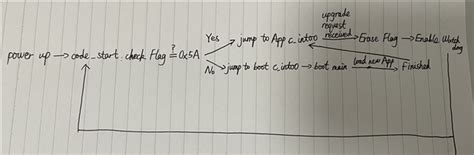 upgrade
request
Yes jump to App c_int00 received Erase Flag Enable Watch
dog
power up code_start. check Flag ?= 0x5A
No jump to boot c_int00 boot main load new App Finished